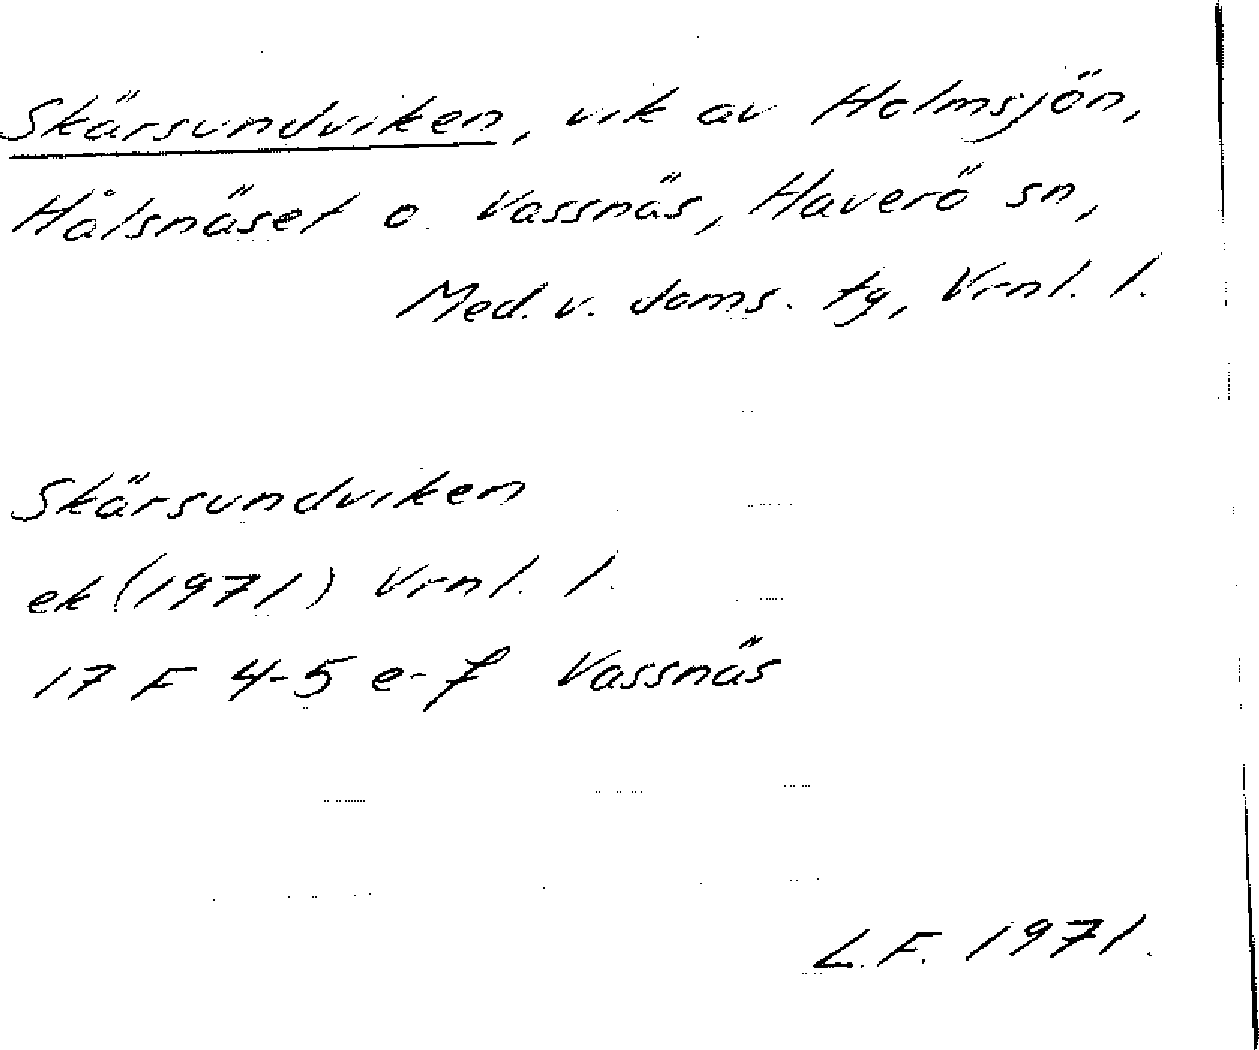 Skärsundviken, vik av Holmsjön,
Hålsnäset o. Vassnäs, Haverö sn,
Med. v. doms. tg, Vrnl. l.
Skärsundviken
ek (1971) Vrnl. l.
17 F 4-5 e-f Vassnäs
L.F. 1971.